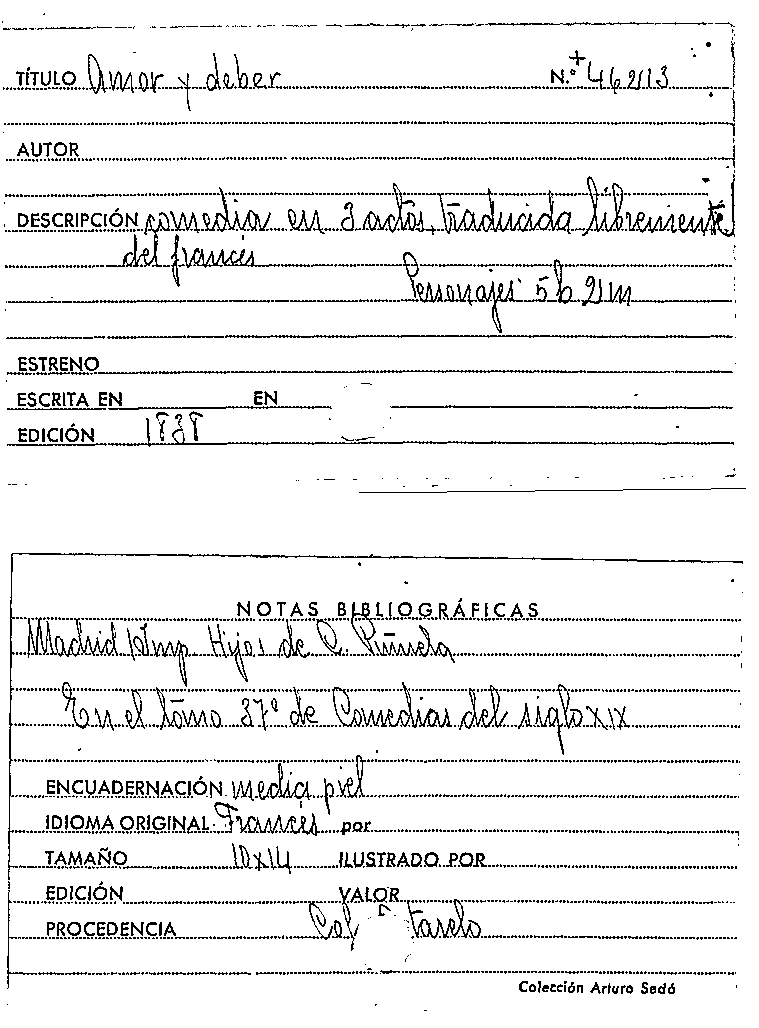 TÍTULO Amor y deber N.º + 46213
AUTOR
DESCRIPCIÓN comedia en 3 actos, traducida libremente
del francés
Personajes 5h 2m
ESTRENO
ESCRITA EN EN
EDICIÓN 1838
NOTAS BIBLIOGRÁFICAS
Madrid Imp. Hijos de C. Piñuela
En el tomo 37º de Comedias del siglo XIX
ENCUADERNACIÓN media piel
IDIOMA ORIGINAL Francés por
TAMAÑO 10x14 ILUSTRADO POR
EDICIÓN VALOR
PROCEDENCIA Col tarelo
Colección Arturo Sedó